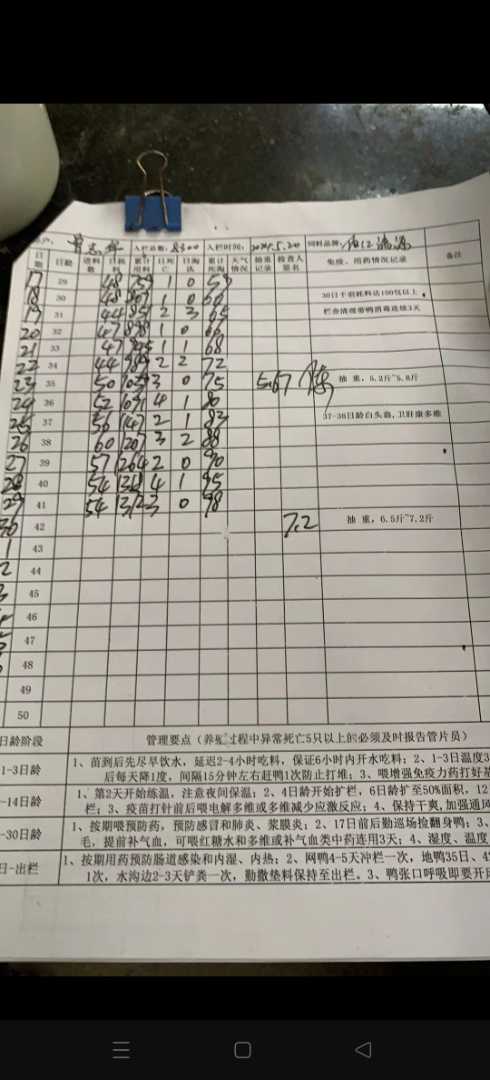 入栏总数：8300 入栏时间：2024.5.20 饲料品牌：
日期 日龄 进料数 日耗料 累计用料 日死亡 日淘汰 累计死淘 天气情况 抽重记录 检查人签名 免疫、用药情况记录 备注
17 29 48 1 0
18 30 48 1 0 30日千羽耗料达100包以上
19 31 44 2 3 65 栏舍清理带鸭消毒连续3天
20 32 47 1 0 66
21 33 47 1 1 68
22 34 44 2 2 72
23 35 50 3 0 75 5.67 抽 重，5.2斤~5.8斤
24 36 52 4 1 80
25 37 56 1147 2 1 83 37-38日龄白头翁,卫肝康多维
26 38 60 1207 3 2 88
27 39 57 1264 2 0 90
28 40 54 1318 4 1 95
29 41 54 1372 3 0 98
30 42 7.2 抽 重，6.5斤~7.2斤
1 43
2 44
45
46
47
48
49
50
日龄阶段 管理要点（养殖过程中异常死亡5只以上的必须及时报告管片员）
1-3日龄 1、苗到后先尽早饮水，延迟2-4小时吃料，保证6小时内开水吃料；2、1-3日温度3
后每天降1度，间隔15分钟左右赶鸭1次防止打堆；3、喂增强免疫力药打好基
-14日龄 1、第2天开始练温，注意夜间保温；2、4日龄开始扩栏，6日龄扩至50%面积，12
栏；3、疫苗打针前后喂电解多维或多维减少应激反应；4、保持干爽,加强通风
-30日龄 1、按期喂预防药，预防感冒和肺炎、浆膜炎；2、17日前后勤巡场捡翻身鸭；3、
毛，提前补气血，可喂红糖水和多维或补气血类中药连用3天；4、湿度、温度
日-出栏 1、按期用药预防肠道感染和内湿、内热；2、网鸭4-5天冲栏一次，地鸭35日、4
1次，水沟边2-3天铲粪一次，勤撒垫料保持至出栏。3、鸭张口呼吸即要开